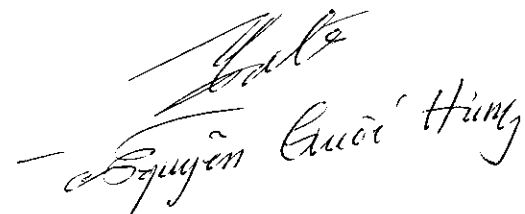 Nguyễn Quốc Hùng